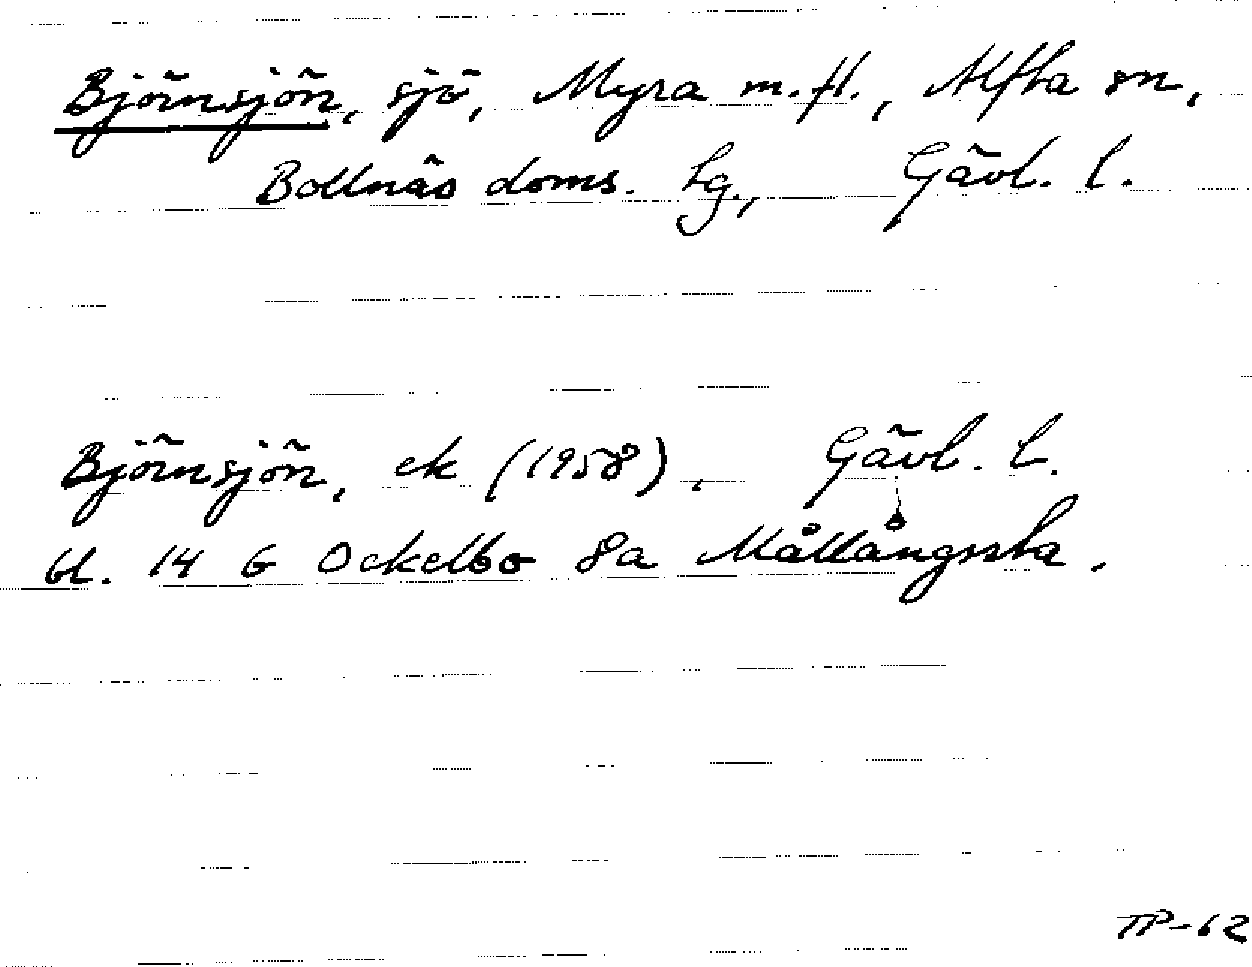 Björnsjön, sjö, Myra m.fl., Alfta sn,
Bollnäs doms. Lg., Gävl. l.
Björnsjön, ek (1958), Gävl. L.
bl. 14 G Ockelbo 8a Mållångssta.
TP-62